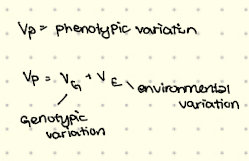 Vp = phenotypic variation
Vp = VG + VE
environmental
variation
Genotypic
variation